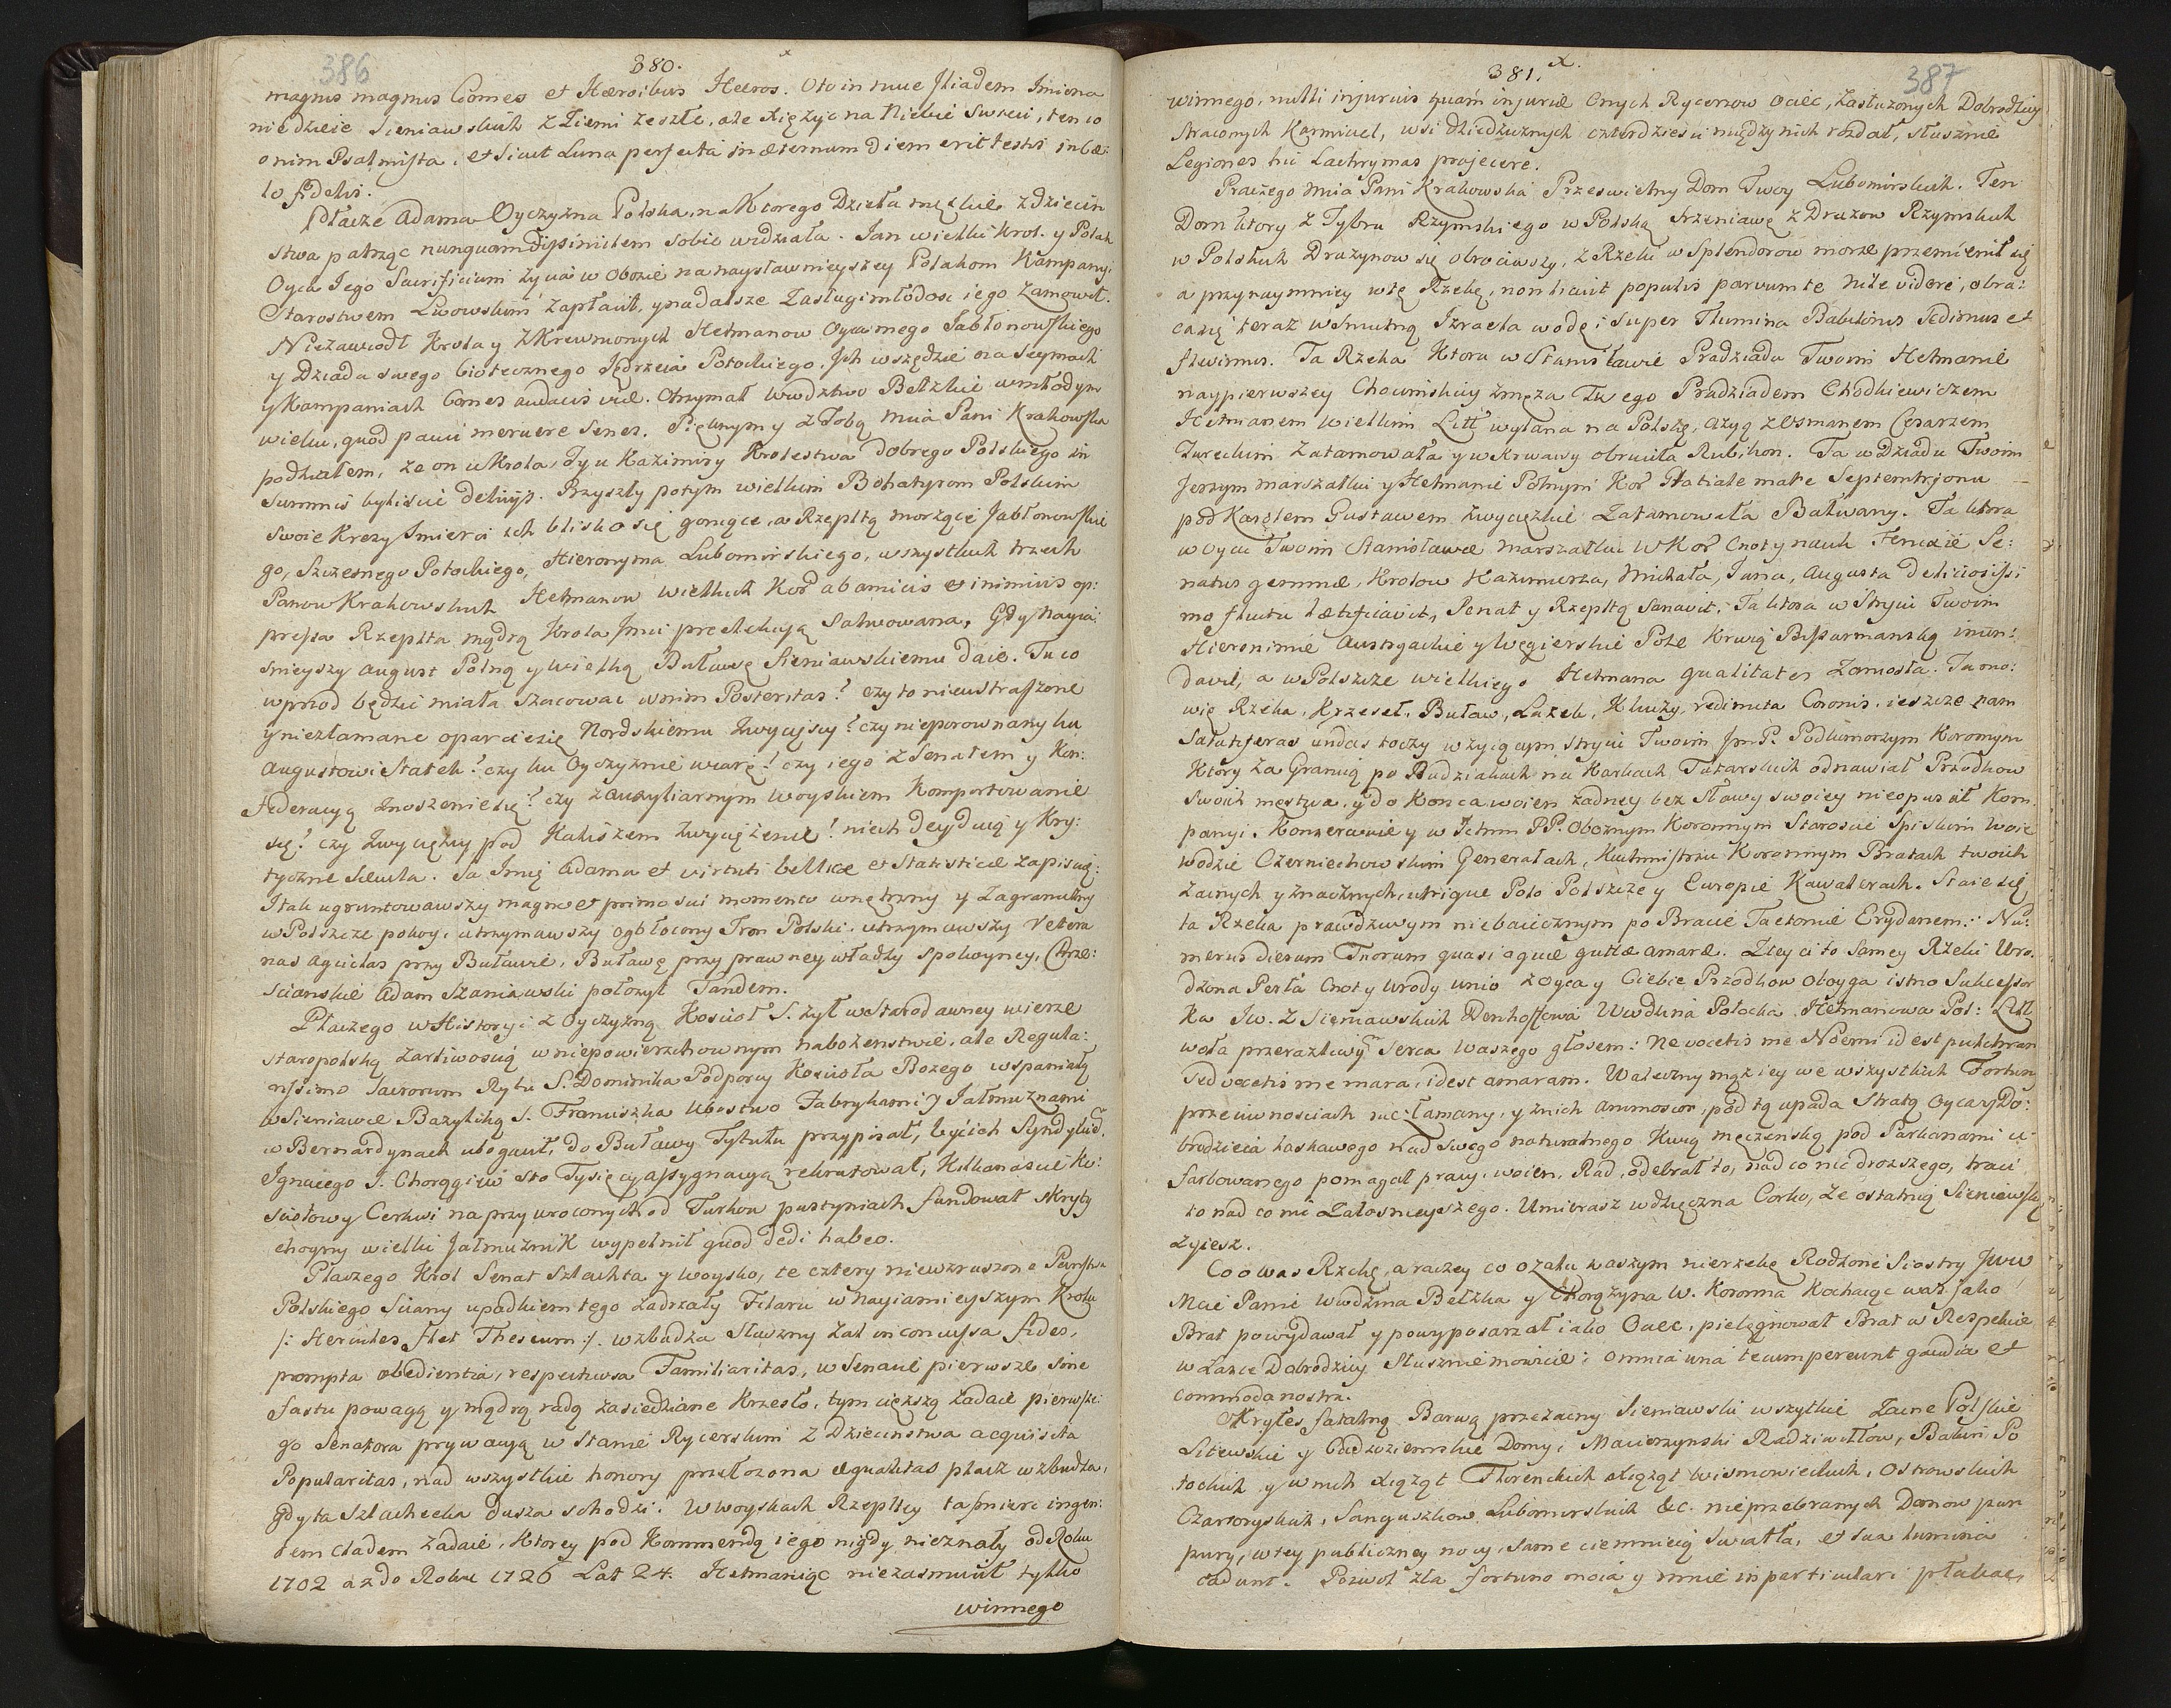 386
380. x
magnus magnus Comes et Heroibus Heros. Oto in nuce Jliadem Jmiona
nie dzieie Sieniawskich z Ziemi zeszłe, ale Xiężyc na Niebie Swieci, ten co
o nim Psalmista: et Sicut Luna perfecta in æternum diem erit testis in Cæ:
lo fidelis.
Płacze Adama Oyczyzna Polska, na Ktorego Dzieła męzkie z dziecin
stwa patrząc nunquam dissimilem sobie widziała. Jan wielki Krol y Polak
Oyca Jego Sacrificium życia w obozie na naysławnieyszey Polakom Kampanyi
Starostwem Lwowskim zapłacił, y na dalsze Zasługi młodosc iego zamowił.
Niezawiodł Krola y zKrewnionych Hetmanow Oycow mego Jabłonowskiego
y Dziada swego Ciotecznego Jędrzeia Potockiego. Jch wszędzie na Seymach
y Kampaniach Comes audacis viæ. Otrzymał Wwdztwo Bełzkie w młodym
wieku, quod pauci meruere Senes. Pięknym y z Tobą Mcia Pani Krakowska
podziałem, że on u Krola, Ty u Kazimiry Krolestwa dobrego Polskiego in
Summis byliscie deliciis. Przyszły potym wielkim Bohatyrom Polskim
swoie Kresy Smierci ich blisko się goniące, a Rzepltą morzące Jabłonowskie
go, Szczesnego Potockiego, Hieronyma Lubomirskiego, wszystkich trzech
Panow Krakowskich Hetmanow wielkich Kor ab amicis et inimicis op:
pressa Rzeplta mądrą Krola Jmci preelekcyą Salwowana, Gdy Nayia:
snieyszy August Polną y wielką Buławę Sieniawskiemu daie. Tu co
wprzod będzie miała szacowac w nim Posteritas? czy to nieustraszone
y niezłamane oparcie się Nordskiemu Zwycięscy? czy nieporownany ku
Augustowi Statek? czy ku Oyczyznie wiarę? czy iego z Senatem y Kon:
federacyą znoszenie się? czy z auxyliarnym woyskiem Komportowanie
się? czy Zwycięzcy pod Kaliszem Zwyciężenie? niech decyduią y Kry:
tyczne Siewla. Ja Jmię Adama et virtuti bellicæ et Statisticæ zapisuię:
Jtak ugruntowawszy magno et primo sui momento wnętrzny y Zagraniczny
w Polszcze pokoy, utrzymawszy ozbłocony Tron Polski, utrzymawszy Vetera
nas aquilas przy Buławie, Buławę przy prawney władzy spokoyney, Chrze:
scianskie Adam Szaniawski położył Tandem.
Płacze go w Historyi z Oyczyzną Kosciol S. żył w Starodawney wierze
staropolską żarliwoscią w niepowierzchownym nabożenstwie, ale Regula:
rissimo Sacrorum Rytu S. Dominika Podporcy Kosciola Bozego wspaniałą
w Sieniawie Bazylikę S. Franciszka Ubostwo Fabrykami y Jałmużnami
w Bernardynach ubogacił, do Buławy Tytułu przypisał, bycich Syndykiem
Ignacego S. Chorągiew sto Tysięcy assygnacyą rekrutował, Kilkanascie Ko:
sciołow y Cerkwi na przywroconych od Turkow pustyniach fundował skryty
choyny wielki Jałmużnik wypełnił quod dedi habeo.
Placze go Krol Senat Szlachta y woysko, te cztery niewzruszone Panstwa
Polskiego Sciany upadkiem tego zadrżały Filaru w Nayiasnieyszym Krolu
/: Hercules flet Theseum :/. wzbudza Słuszny żal inconcussa fides,
prompta obedientia, respectuosa Familiaritas, w Senacie pierwsze sine
fastu powagą y mądrą radą zasiedziane Krzesło, tym cięższą zadaie pierwsze:
go Senatora prywacyą w Stanie Rycerskim z Dziecinstwa acquisita
Popularitas, nad wszystkie honory przełożona æqualitas płacz wzbudza,
gdy ta Szlachecka dusza schodzi. W woyskach Rzepltey ta smierc ingen:
tem cladem zadaie, Ktorey pod Kommendą iego nigdy nieznały od Roku
1702 aż do Roku 1726 Lat 24. Hetmaniąc niezasmucił tylko
winnego
387
381. x.
winnego, nulli injurius quam injuriæ Onych Rycerzow Ociec, Zasłużonych Dobrodziey
straconych Karmiciel, wsi dziedzicznych czterdziesci między nich rozdał, słusznie
Legiones hic Lachrymas projecere.
Płacze go Mcia Pani Krakowska Przeswietny Dom Twoy Lubomirskich. Ten
Dom ktory z Tybru Rzymskiego w Polską Srzeniawę z Druzow Rzymskich
w Polskich Drużynow się obrociwszy, z Rzeki w Splendorow morze przemienił się
a przynaymniey w tę Rzekę, non licuit populis parvum te Nile videre, obra:
ca się teraz w smutną Izraela wodę: Super Flumina Babilonis Sedimus et
flevimus. Ta Rzeka Ktora w Stanisławie Pradziadu Twoim Hetmanie
naypierwszey Chocimskiey z męża Twego Pradziadem Chodkiewiczem
Hetmanem wielkim Litt wylana na Polskę, Azyą z Osmanem Cesarzem
Tureckim zatamowała y w Krwawy obrociła Rubikon. Ta w Dziadu Twoim
Jerzym Marszałku y Hetmanie Polnym Kor Fatiale mare Septemtrionu
pod Karolem Gustawem Zwycięzkie Zatamowała Bałwany. Ta ktora
w Oycu Twoim Stanisławie Marszałku WKor Cnoty nauk Fenixie Se:
natus gemmæ, Krolow Kazimierza, Michała, Jana, Augusta deliciosissi
mo fluctu lætificavit, Senat y Rzepltą Sanavit, Ta ktora w Stryiu Twoim
Hieronimie Austryackie y Węgierskie Pole Krwią Bisurmanską inun:
davit, a w Polszcze wielkiego Hetmana qualitates zamosła. Ta mo:
wię Rzeka, Krzeseł, Buław, Lasek, Kluczy, redimita Coronis, ieszcze nam
Salutiferas undas toczy w żyiącym Stryiu Twoim Jm P. Podkomorzym Koronnym
Ktory za Granicą po Budziakach na Karkach Tatarskich odnawiał Przodkow
swoich męstwa, y do Konca woien żadney bez Sławy swoiey nieopuscił Kom:
panyi. Konserwuie y w Jchm PP. Oboznym Koronnym Staroscie Spiskim Woie
wodzie Czerniechowskim Generałach, Kuchmistrzu Koronnym Bratach twoich
Zacnych y znacznych, utrique Polo Polszcze y Europie Kawalerach. Staie się
ta Rzeka prawdziwym niebaiecznym po Bracie Faetonie Erydanem: Nu:
merus dierum Tuorum quasi aquæ guttæ amaræ. Ztey ci to samey Rzeki Uro:
dzona Perła Cnoty Urody unio z Oyca y Ciebie Przodkow oboyga istno Sukcessor
Ka Jw. z Sieniawskich Denhoffowa Wwdzina Połocka Hetmanowa Pol: Litt
woła przeraźliwym serca waszego głosem: Ne vocetis me Noemi id est pulchram
sed vocetis me mara, idest amaram. Waleczny mąż iey we wszystkich Fortuny
przeciwnosciach niezłamany, y żnich animosior, pod tą upada Stratą Oyca y Do:
brodzieia łaskawego nad swego naturalnego Krwią męczenską pod Parkanami u:
farbowanego pomagał pracy, woien, Rad, odebrał to, nad co nic droższego, traci
to nad co nic Załosnieyszego. Umierasz wdzięczna Corko, że ostatnią Sieniawską
żyiesz.
Co o was Rzekę, a raczey co o żalu waszym nierzekę Rodzone Siostry Jww
Mcie Panie Wwdzina Bełzka y Chorążyna W. Koronna Kochaiąc was iako
Brat powydawał y powyposarzał iako Ociec, pielęgnował Brat w Respekcie
w Łasce Dobrodziey Słusznie mowicie: omnia una tecum pereunt gaudia et
commoda nostra.
Okryłes fatalną Barwą przezacny Sieniawski wszytkie Zacne Polskie
Litewskie y Cudzoziemskie Domy: Macierzynski Radziwiłłow, Babin Po
tockich y w nich Xiążąt Florenckich Xiążąt Wisniowieckich, Ostrowskich
Czartoryskich, Sanguszkow Lubomirskich &c. nieprzebranych Domow pur
pury, w tey publiczney nocy, same ciemnieią Swiatła, et sua lumina
cadunt. Pozwol zła fortuno moia y mnie in particulari płakac,